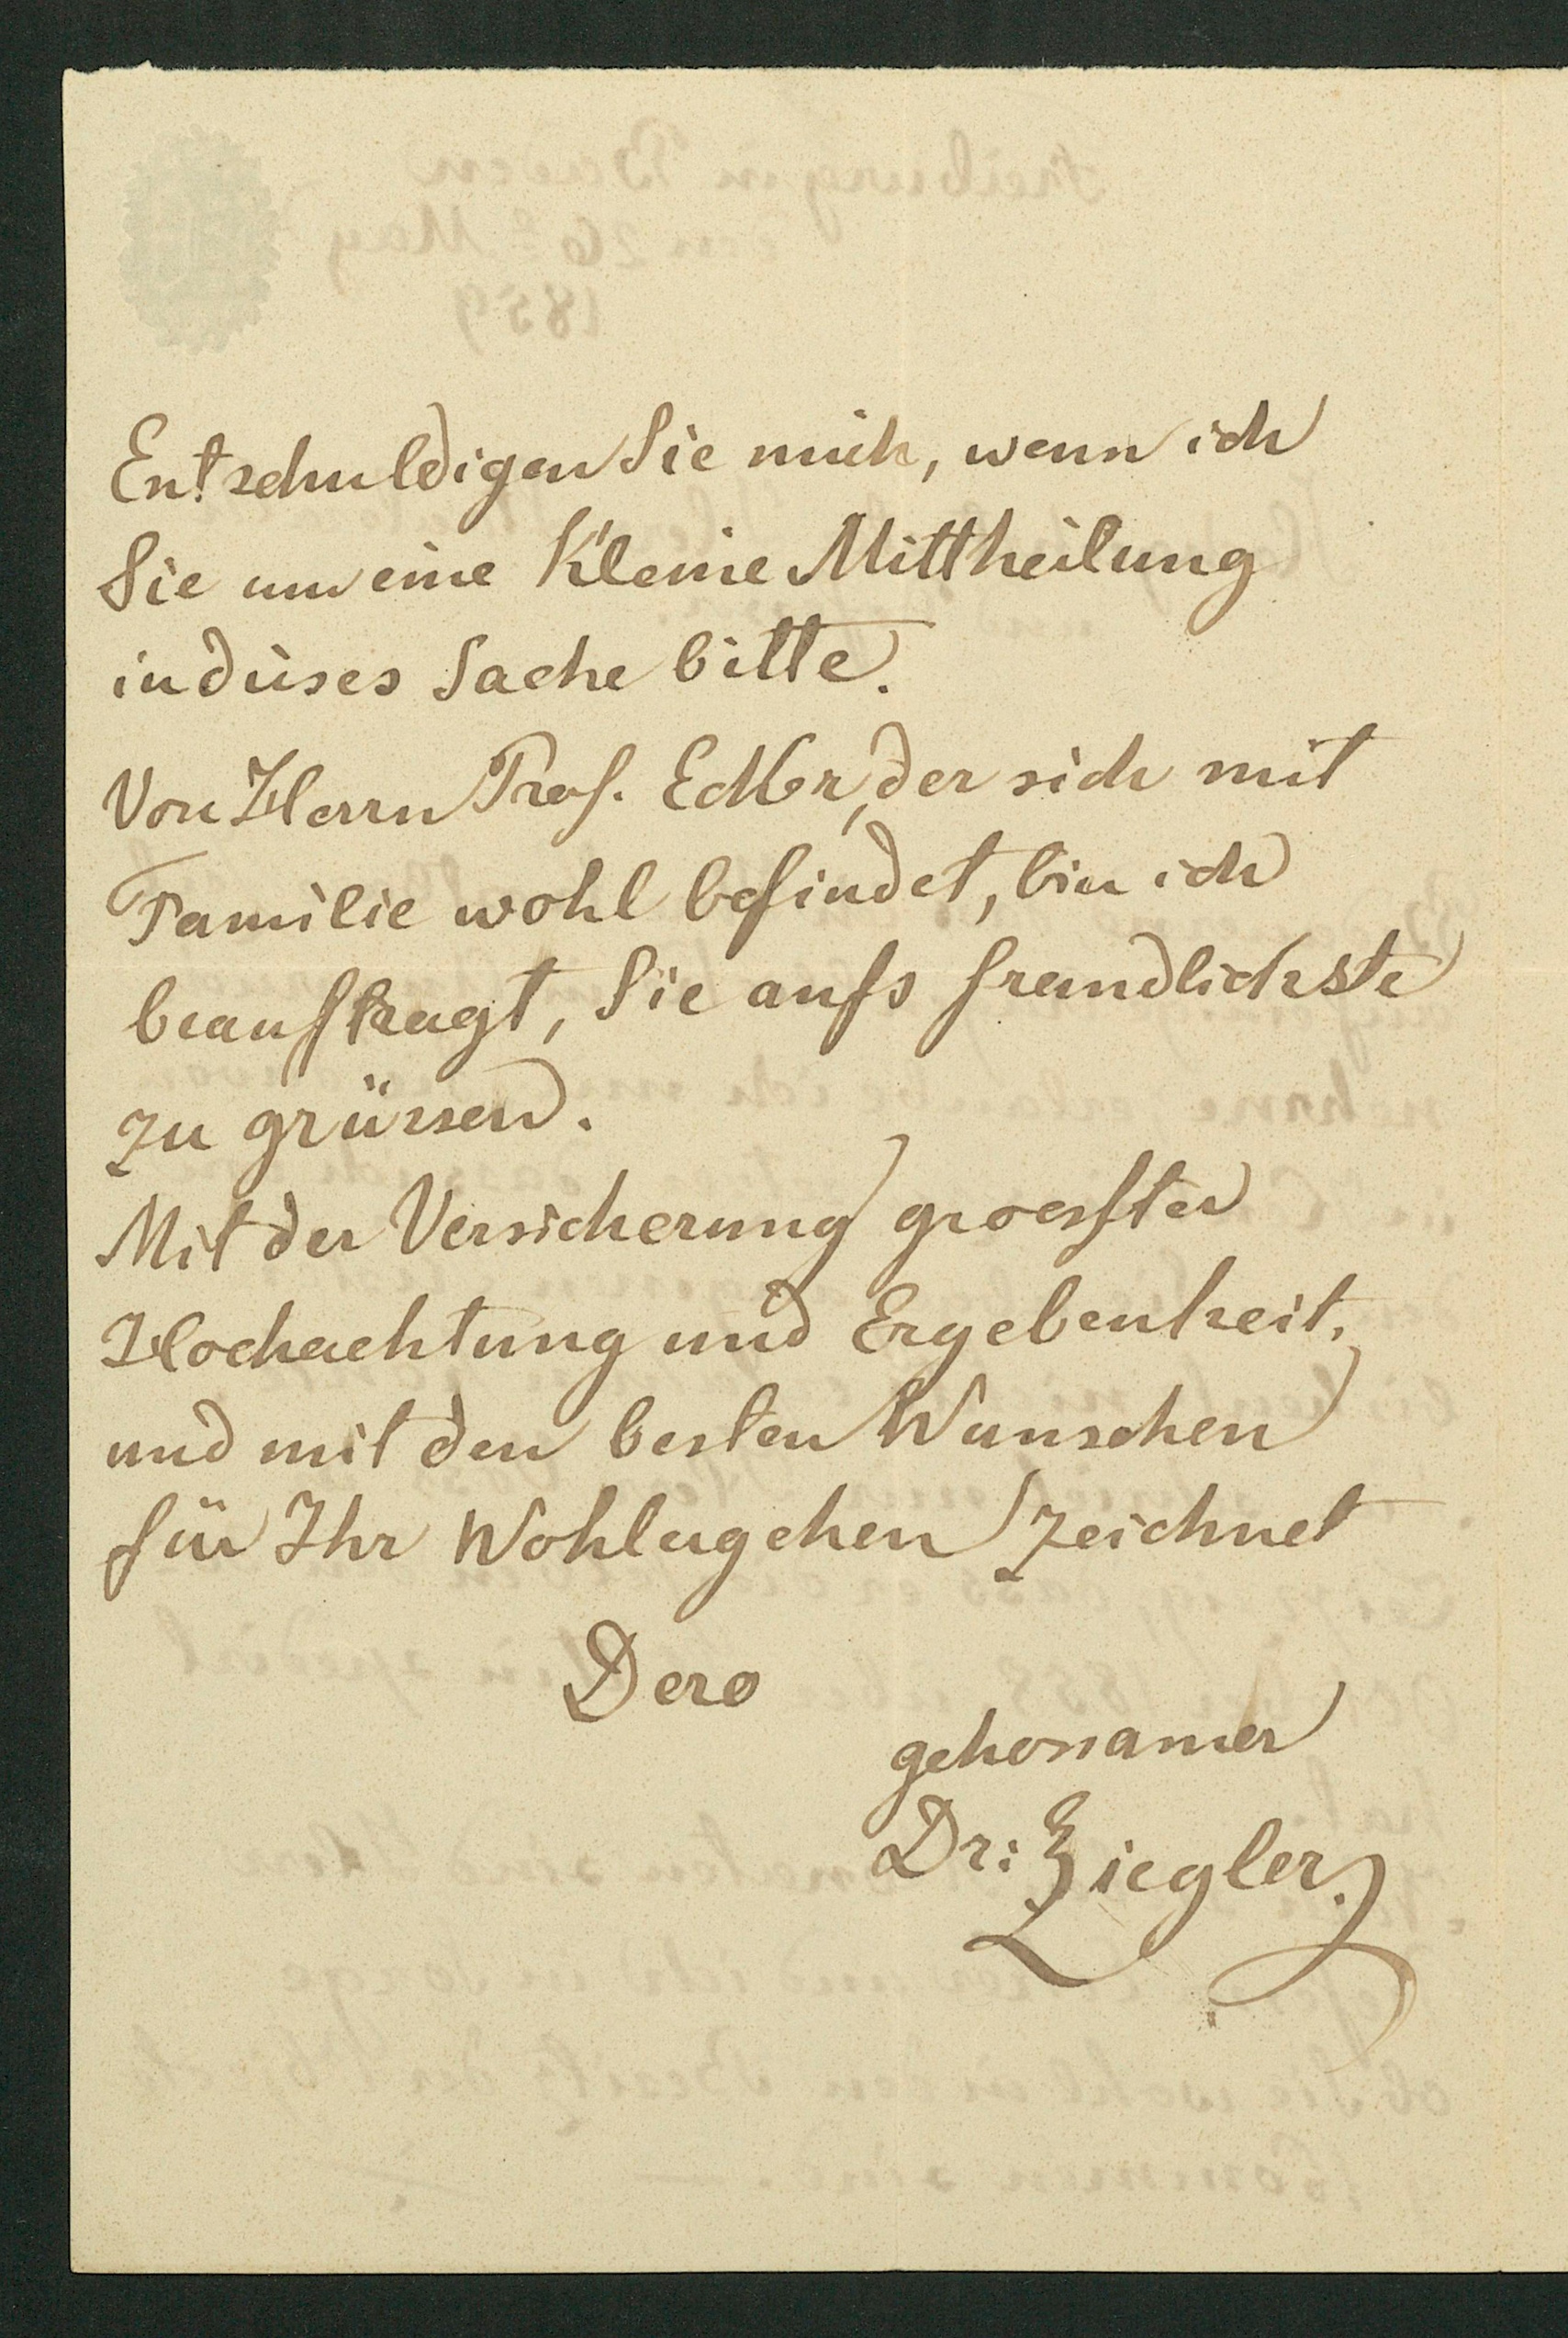 Entschuldigen Sie mich, wenn ich
Sie um eine Kleine Mittheilung
in dieses Sache bitte.
Von Herrn Prof. Ecker, der sich mit
Familie wohl befindet, bin ich
beauftragt, Sie aufs freundlichste
zu grüssen.
Mit der Versicherung groesster
Hochachtung und Ergebenheit,
und mit den besten Wünschen
für Ihr Wohlergehen zeichnet
Dero
gehorsamer
Dr: Ziegler.